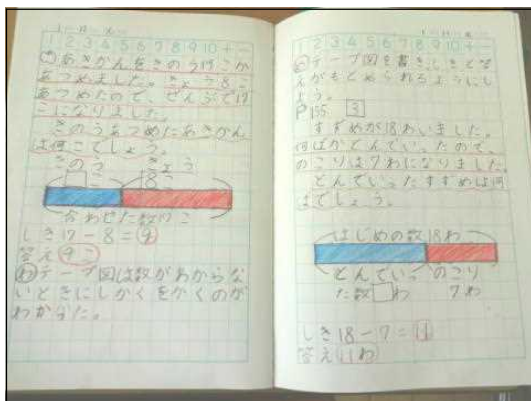 1 2 3 4 5 6 7 8 9 10 + -
あきかんをきのう
あつめました。きょう8こ
あつめたので、ぜんぶで17
こになりました。
きのうあつめたあきかん
は何こでしょう。
きのう きょう
□こ 8こ
合わせた数17こ
しき17-8=9
答え9こ
わテープ図は数がわからな
いときにしかくをかくのが
わかった。
1 2 3 4 5 6 7 8 9 10 + -
テープ図を書き、しきと答
えがもとめられるようにし
よう。
P155 3
すずめが18わいました。
何ばかとんでいったので、
のこりは7わになりました。
とんでいったすずめは何
ばでしょう。
はじめの数18わ
とんでいっ のこり
た数□わ 7わ
しき18-7=11
答え11わ